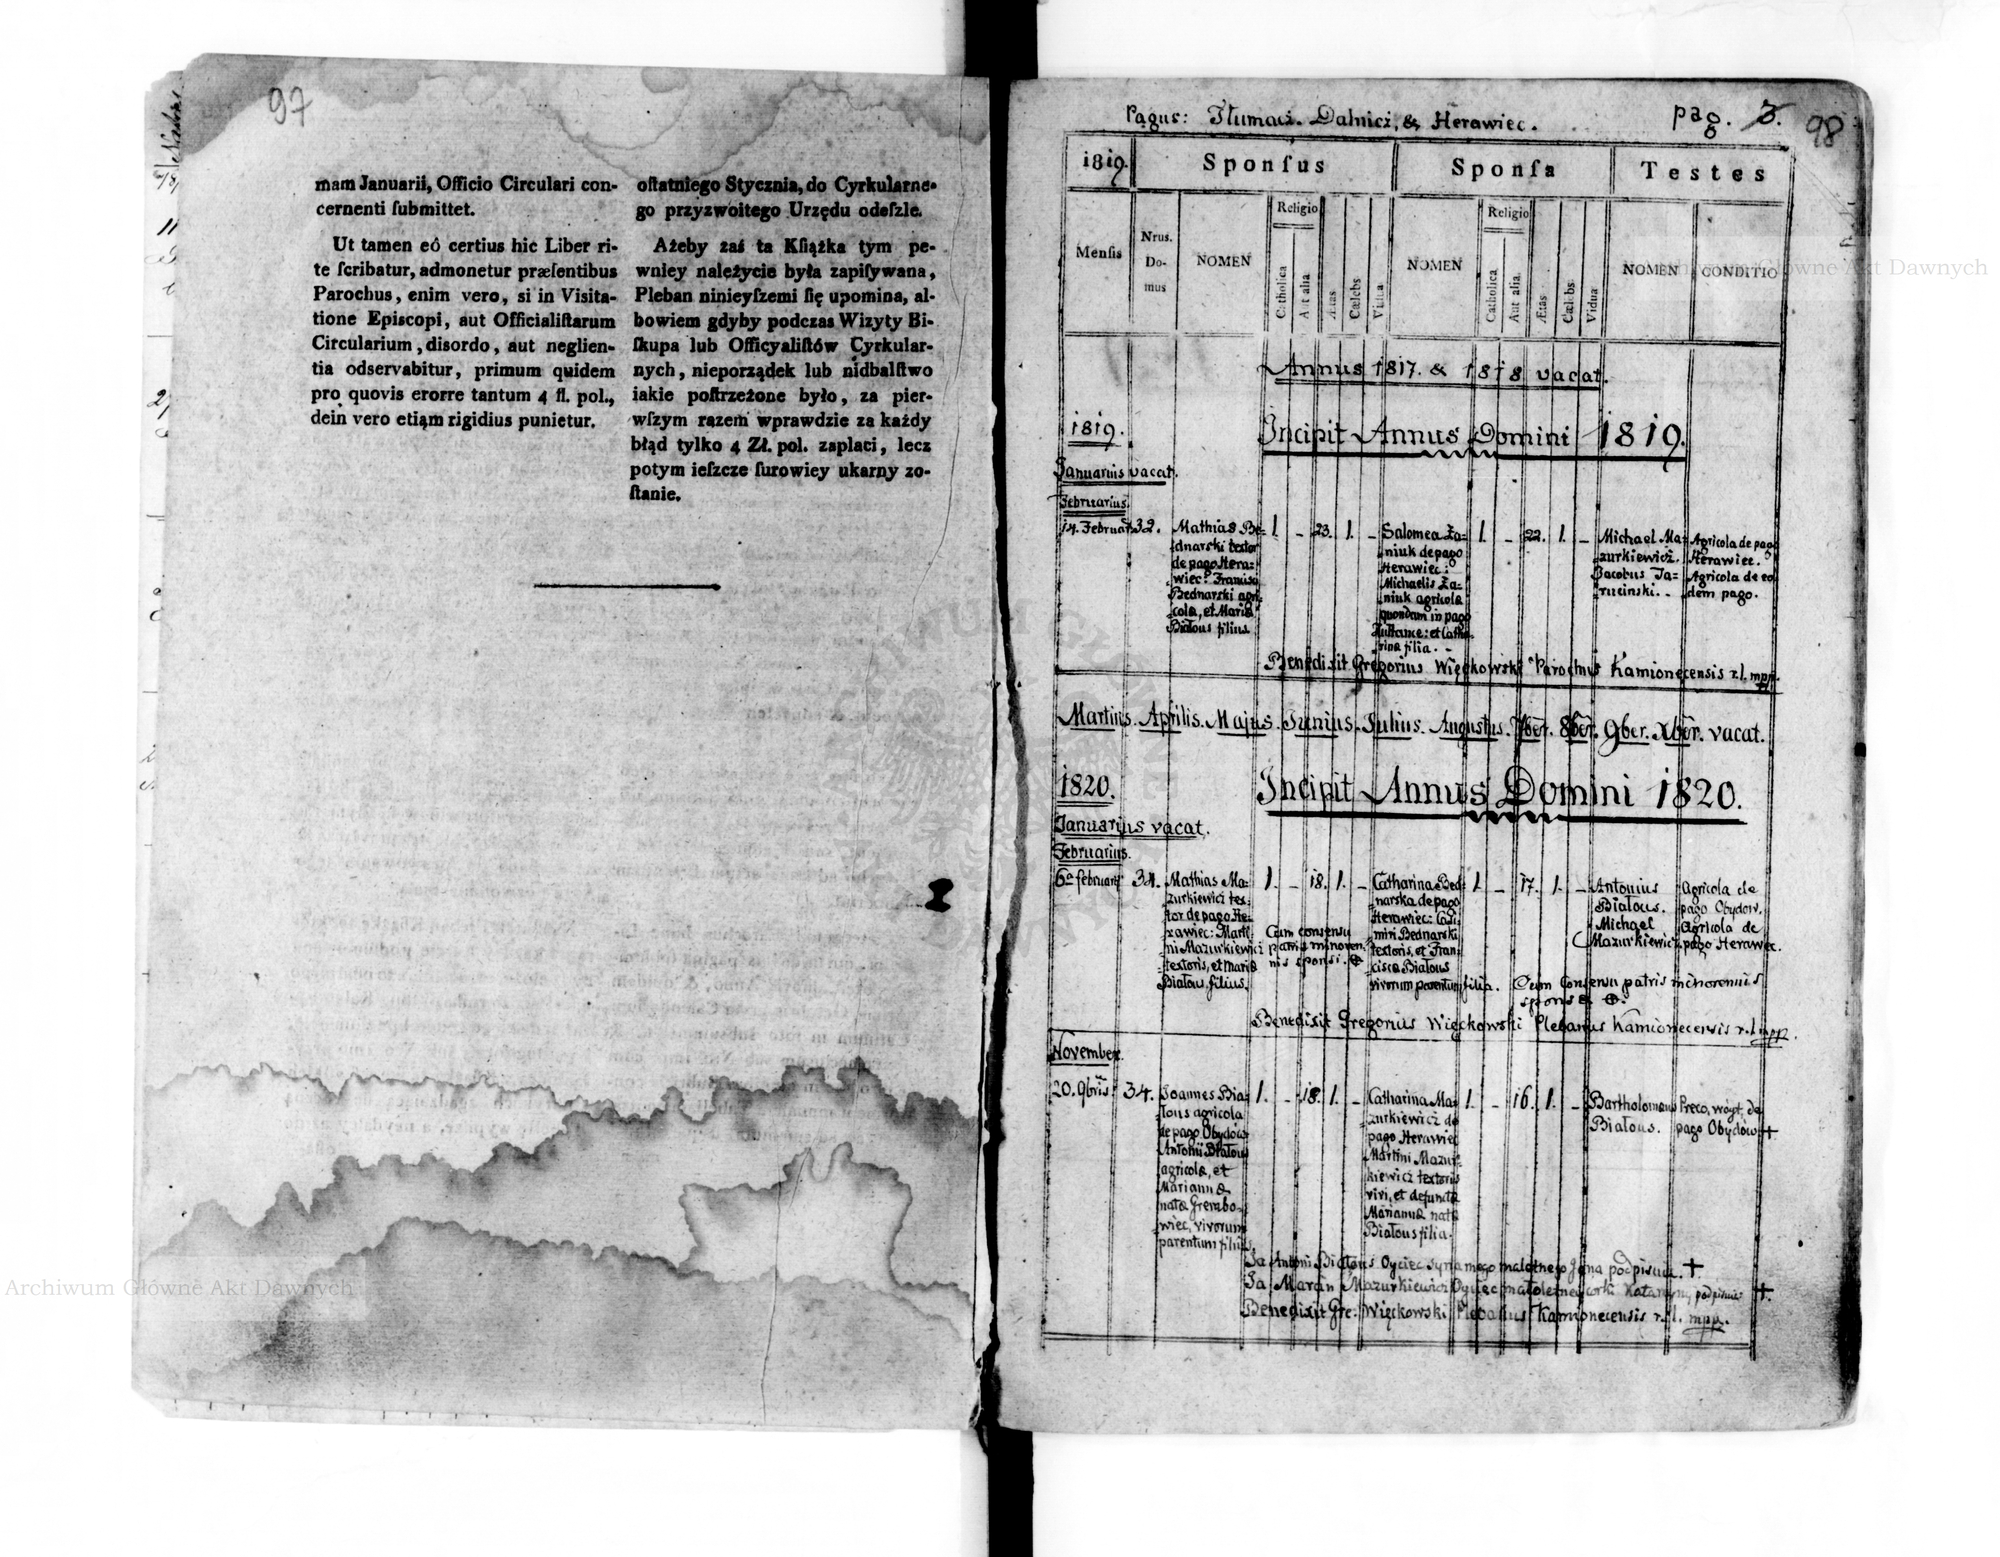 97
mam Januarii, Officio Circulari con-
cernenti ſubmittet.
Ut tamen eó certius hic Liber ri-
te ſcribatur, admonetur præſentibus
Parochus, enim vero, si in Viſita-
tione Epiſcopi, aut Officialiſtarum
Circularium, disordo, aut neglien-
tia odservabitur, primum quidem
pro quovis erorre tantum 4 fl. pol.,
dein vero etiąm rigidius punietur.
oſtatniego Stycznia, do Cyrkularne-
go przyzwoitego Urzędu odeſzle.
Ażeby zaś ta Kſiążka tym pe-
wniey należycie była zapiſywana,
Pleban ninieyſzemi ſię upomina, al-
bowiem gdyby podczas Wizyty Bi-
ſkupa lub Officyaliſtów Cyrkular-
nych, nieporządek lub nidbalſtwo
iakie poſtrzeżone było, za pier-
wſzym razem wprawdzie za każdy
błąd tylko 4 Zł. pol. zaplaci, lecz
potym ieſzcze ſurowiey ukarny zo-
ſtanie.
Pagus: Tłumacz. Dalnicz, & Herawiec.
pag. 3.
98
1819.
Sponſus
Sponſa
Testes
Menſis
Nrus.
Do-
mus
NOMEN
Religio
Catholica
Aut alia
Ætas
Cælebs
Vidua
NOMEN
Religio
Catholica
Aut alia
Ætas
Cælebs
Vidua
NOMEN
CONDITIO
Annus 1817. & 1818 vacat.
1819.
Incipit Annus Domini 1819.
Januarius vacat.
Februarius.
14. Februar. 32.
Mathias Be-
dnarski textor
de pago Hera-
wiec: Francisci
Bednarski agri-
colæ, et Mariæ
Białous filius.
1. - 23. 1. -
Salomea Za-
niuk de pago
Herawiec:
Michaelis Za-
niuk agricolæ
quondam in pago
et Catha-
rina filia. -
1. - 22. 1. -
Michael Ma-
zurkiewicz.
Jacobus Ja-
rucinski. -
Agricola de pago
Herawiec.
Agricola de eo-
dem pago.
Benedixit Gregorius Więckowski Parochus Kamionecensis r. l. mpp.
Martius. Aprilis. Majus. Junius. Julius. Augustus. 7ber. 8ber. 9ber. Xber. vacat.
1820.
Incipit Annus Domini 1820.
Januarius vacat.
Februarius.
6a februarij 34.
Mathias Ma-
zurkiewicz tex-
tor de pago He-
rawiec: Marti-
ni Mazurkiewicz
textoris, et Mariæ
Białous filius.
1. - 18. 1. -
Cum consensu
patris minoren-
nis sponsi. +
Catharina Bed-
narska de pago
Herawiec: Casi-
miri Bednarski
textoris, et Fran-
ciscæ Białous
vivorum parentum filia.
1. - 17. 1. -
Antonius
Białous.
Michael
Mazurkiewicz
Agricola de
pago Obydow.
Agricola de
pago Herawiec.
Cum Consensu patris minorennis
sponsæ +.
Benedixit Gregorius Więckowski Plebanus Kamionecensis r. l. mpp.
November.
20. 9bris 34.
Joannes Bia-
łous agricola
de pago Obydów
Antonii Białous
agricolæ, et
Mariannæ
natæ Grembo-
wiec, vivorum
parentum filius.
1. - 18. 1. -
Catharina Ma-
zurkiewicz de
pago Herawiec
Martini Mazur-
kiewicz textoris
vivi, et defunctæ
Mariannæ natæ
Białous filia.
1. - 16. 1. -
Bartholomæus
Białous.
Preco, woyt, de
pago Obydow +
Ja Antoni Białous Oyciec syna mego małoletnego Jana podpisuię +
Ja Marcin Mazurkiewicz Oyciec małoletney corki Katarzyny podpisuię +
Benedixit Gre: Więckowski Plebanus Kamionecensis r. l. mpp.
Archiwum Główne Akt Dawnych
Archiwum Główne Akt Dawnych